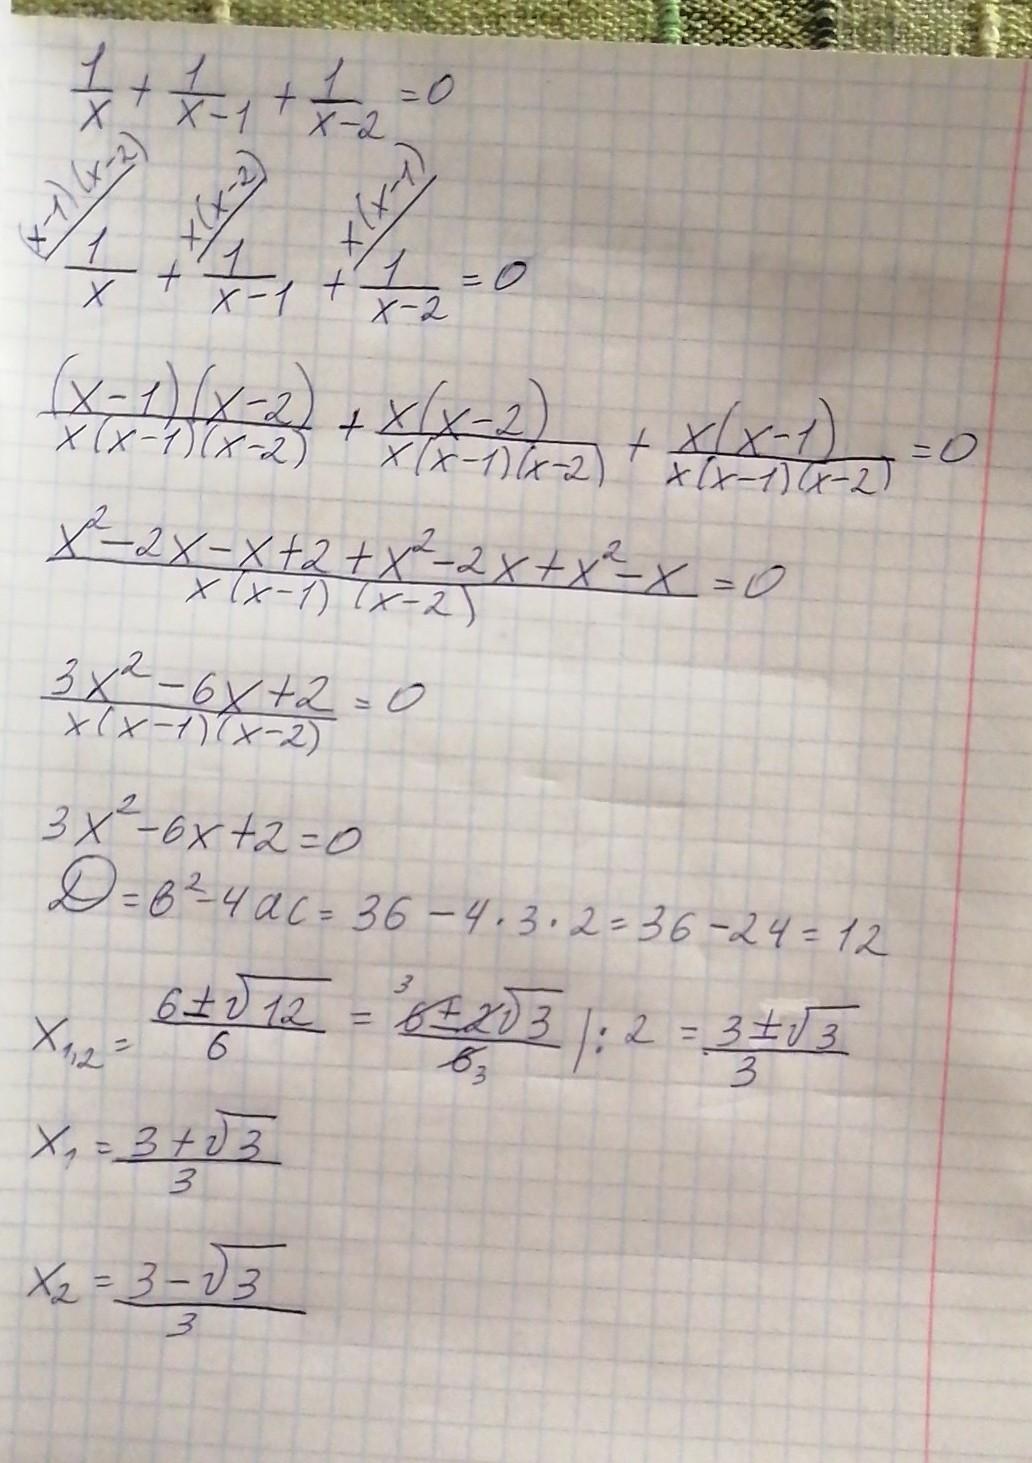 1/x + 1/(x-1) + 1/(x-2) = 0
(x-1)(x-2)/ x(x-2)/ x(x-1)/
1/x + 1/(x-1) + 1/(x-2) = 0
(x-1)(x-2)/x(x-1)(x-2) + x(x-2)/x(x-1)(x-2) + x(x-1)/x(x-1)(x-2) = 0
x²-2x-x+2+x²-2x+x²-x / x(x-1)(x-2) = 0
3x²-6x+2 / x(x-1)(x-2) = 0
3x²-6x+2=0
D=в²-4ac=36-4·3·2=36-24=12
x₁,₂ = 6±√12 / 6 = ³6±2√3 / 6₃ |:2 = 3±√3 / 3
x₁ = 3+√3 / 3
x₂ = 3-√3 / 3